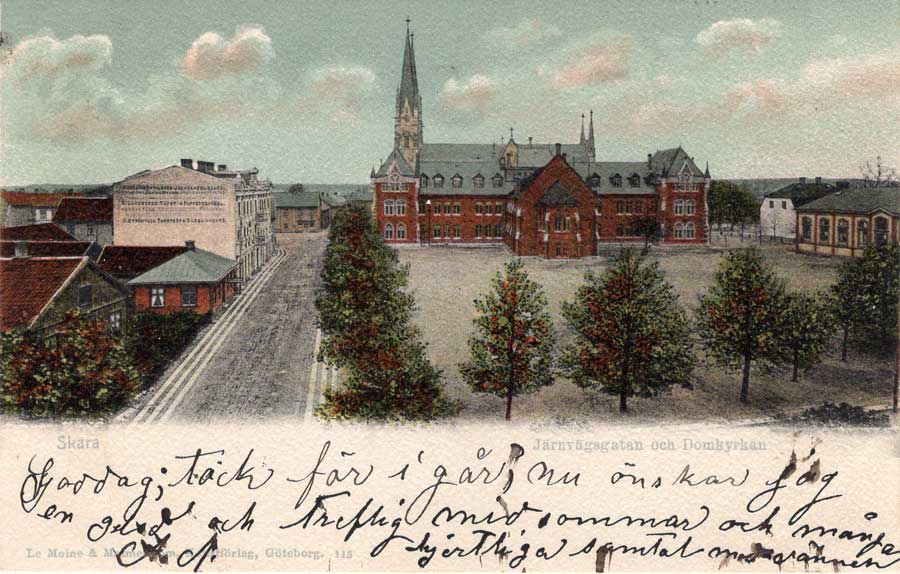 Skara
Järnvägsgatan och Domkyrkan
Goddag; täck för i går; nu önskar jag
en god och treflig midsommar och många
hjertliga samtal med vännen
Le Moine & Malmeström, Konstförlag, Göteborg. 118